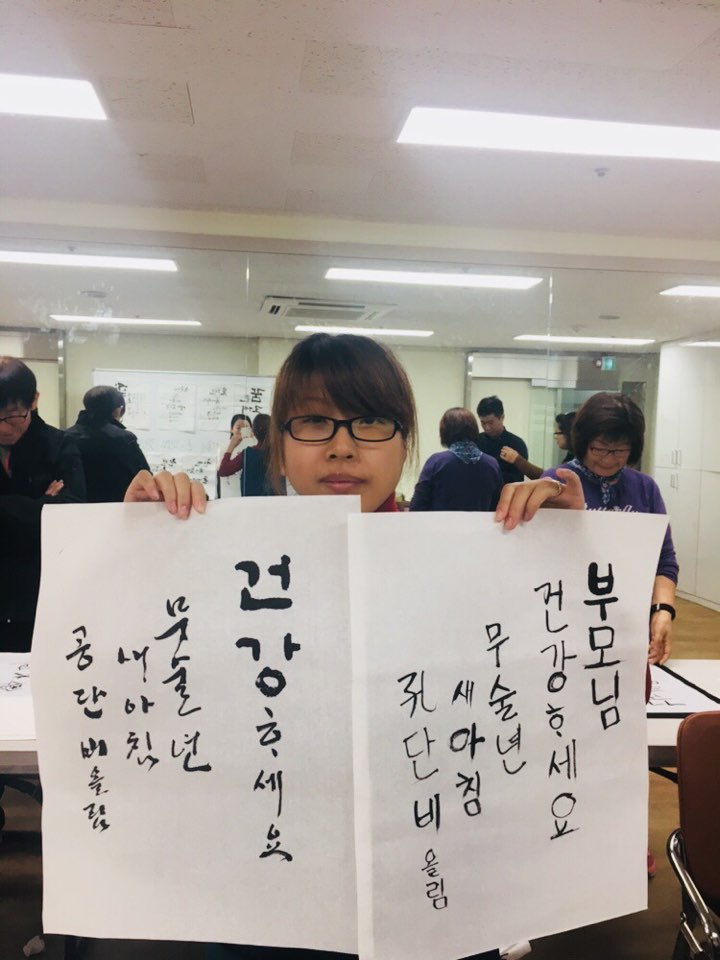 부모님
건강하세요
무술년
새아침
孔단비 올림
건강하세요
무술년
새아침
공단비 올림
꿈